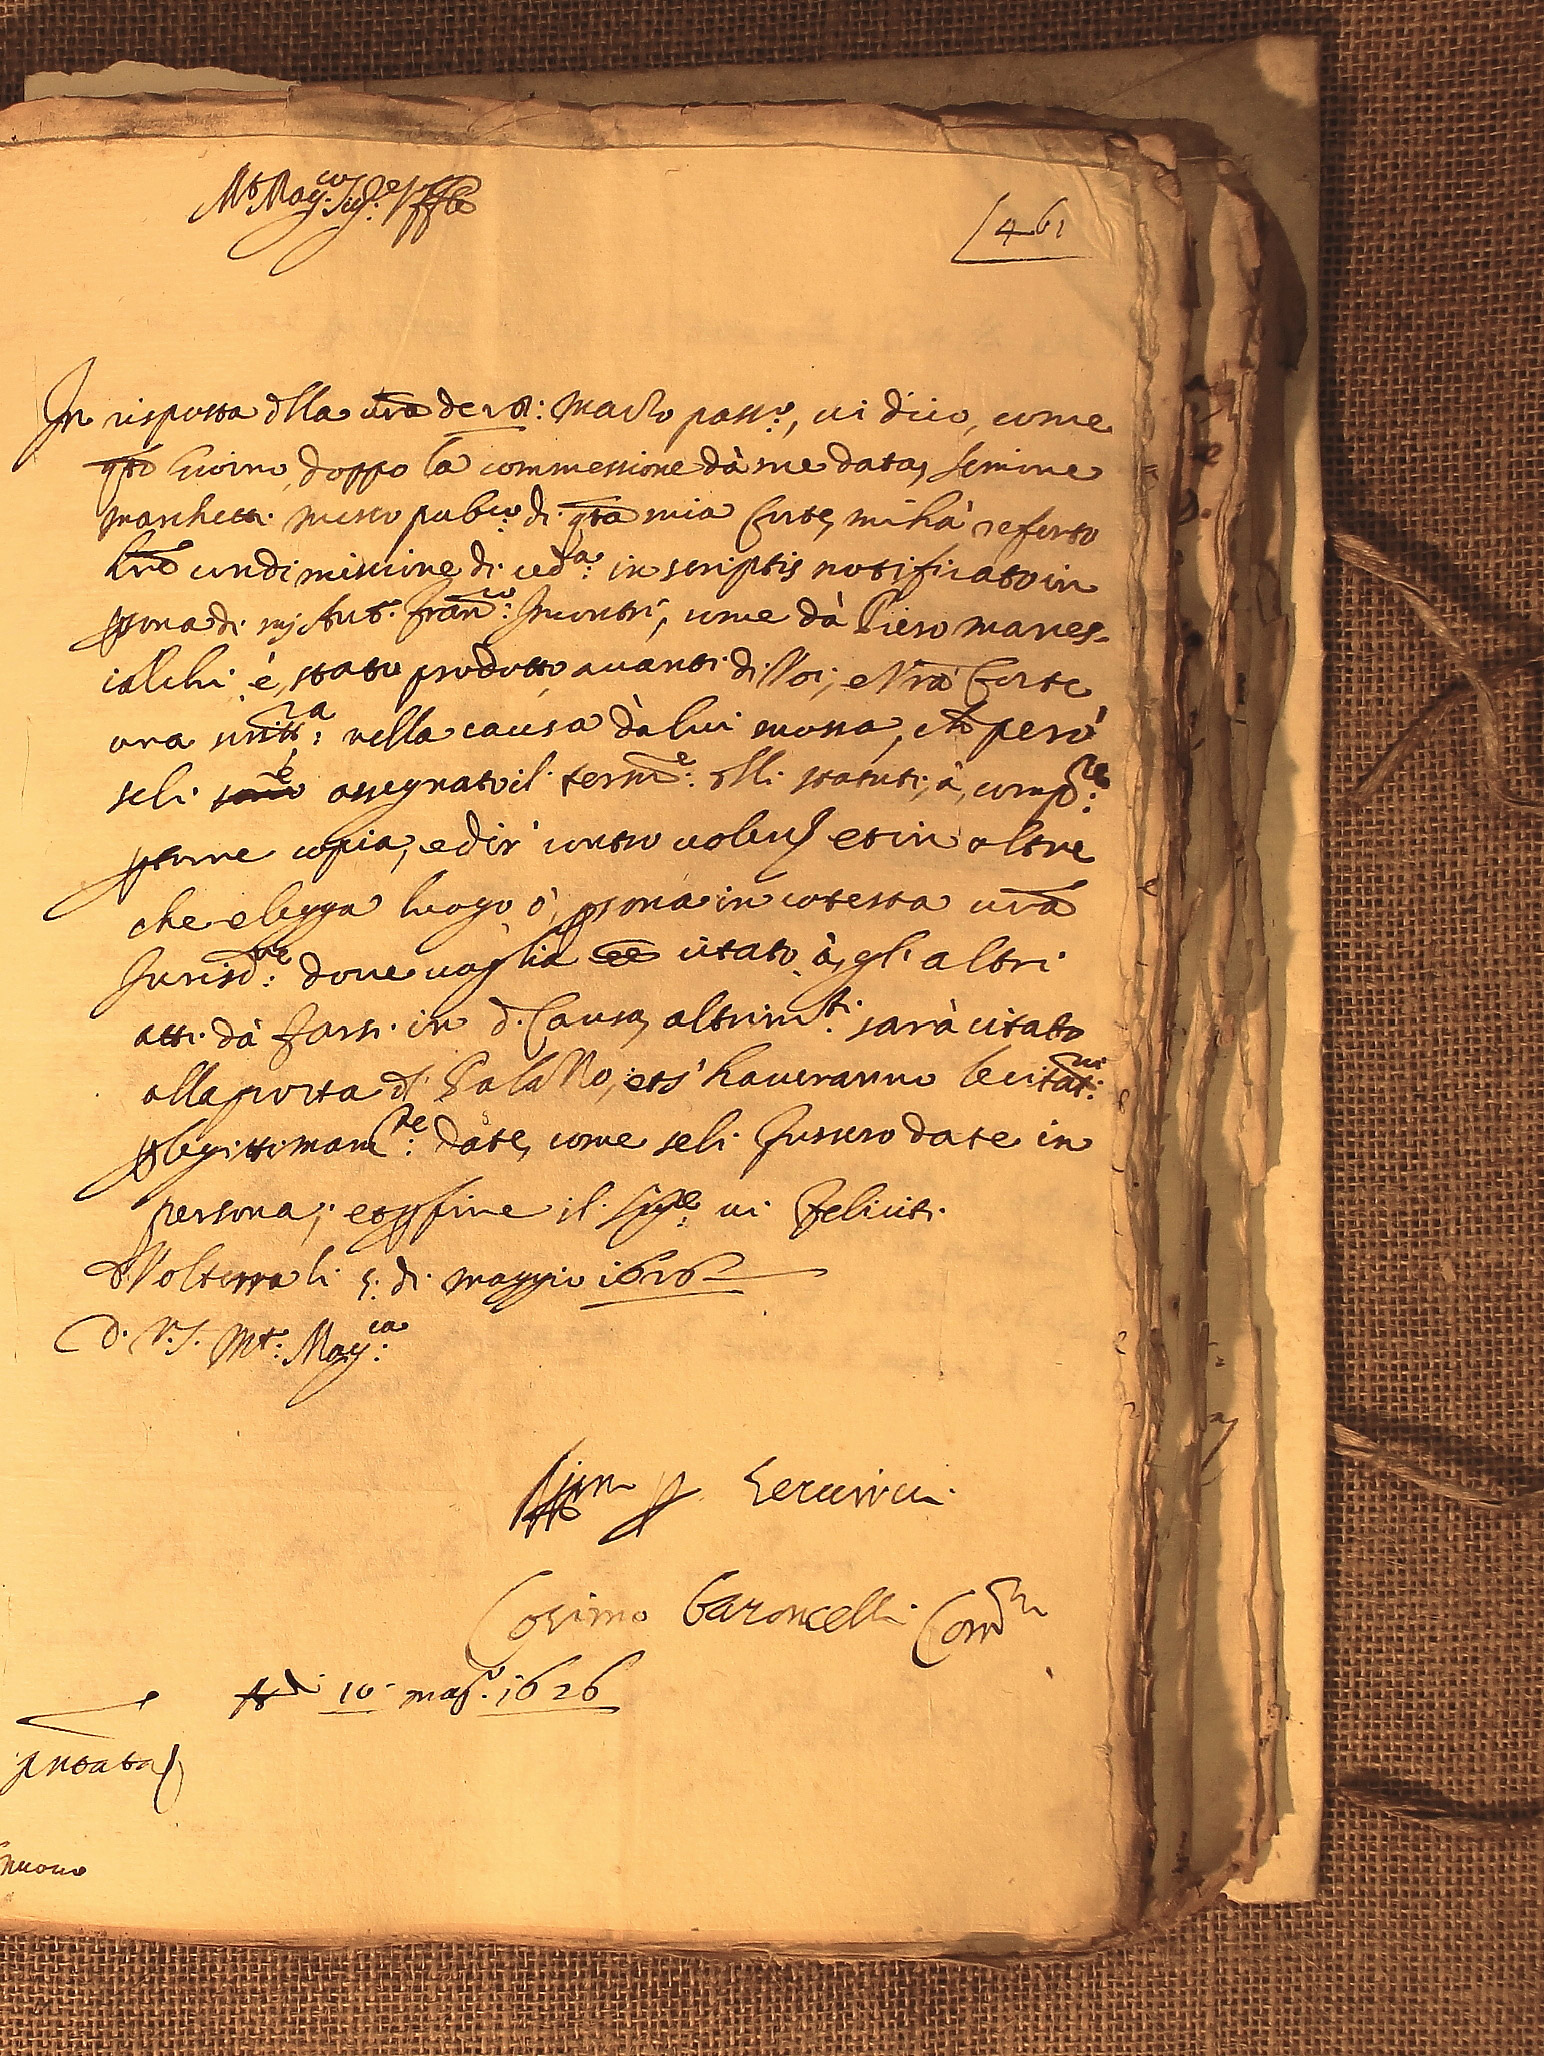 Mto Mag.co Sig.re
461
In risposta dlla vra de 28: Marzo pass.o, vi dico, come
qto giorno, doppo la commessione dà me data, Simone
Marchetti messo pub.co di qta mia Corte, mi hà referto
hre con dimissione di ced.a: in scriptis notificato in
psona di mj Ant.o Fran.co: Incontri, come dà Piero mares-
calchi è, stato prodotto avanti di Voi, e Vra Corte
una nella causa dà lui mossa, et però
seli è assegnato il term.e: dlli statuti, à, comp.re:
pserne copia, e dir' contro volens et in oltre
che elegga luogo ò, psona in cotesta vra
Jurisd.ne: dove voglia ee citato à, gli altri
atti dà farsi in d. Causa, altrim.ti sarà citato
alla porta d' Palazzo, et s' haveranno le citat.ni:
p legittimam.te: date, come seli fussero date in
persona; et p fine il Sig.re: vi feliciti
Volterra li 5: di maggio 1626
D. V.S. Mt: Mag.ca:
Aff.mo p Servirvi
Cosimo Baroncelli Com.rio
Adi 10 mag.o 1626
pntata
nuovo